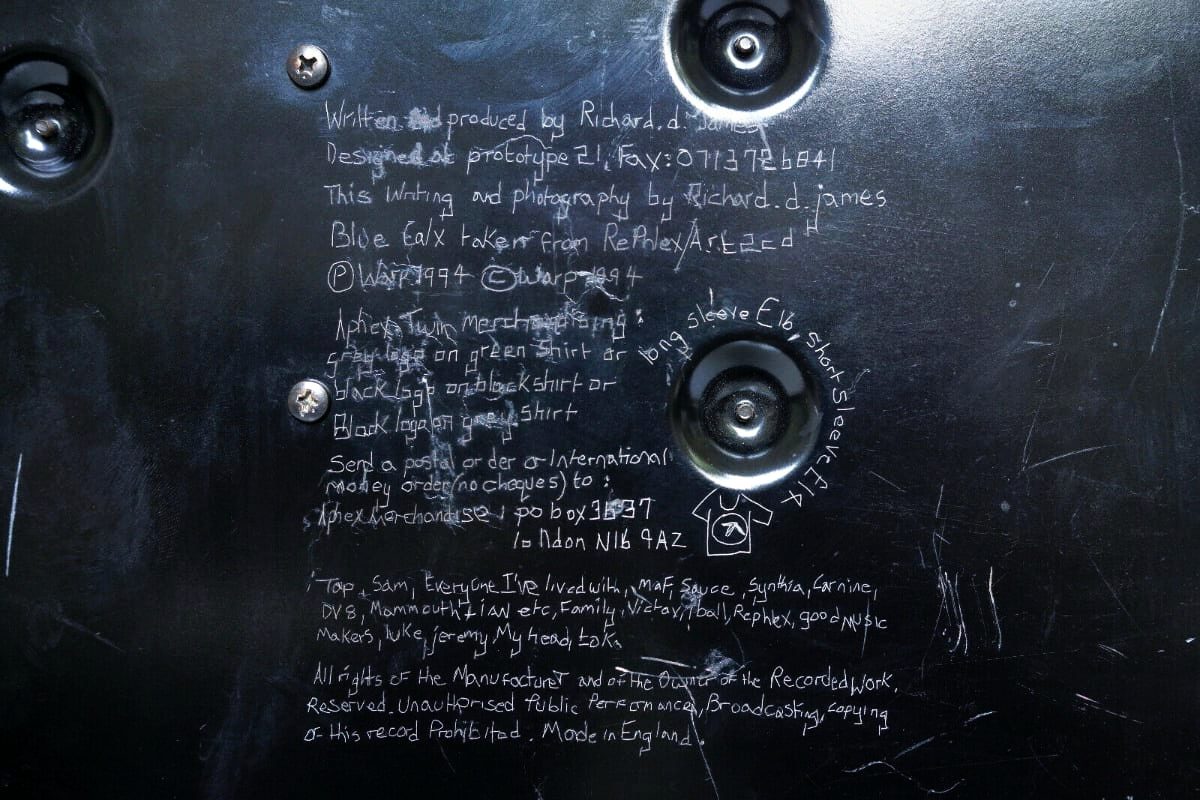 Written and produced by Richard.d. James
Designed at prototype 21, Fax: 0713726841
This Writing and photography by Richard.d.james
Blue Calx taken from Rephlex/Art 2cd
Ⓟ Warp 1994 © Warp 1994
Aphex Twin merchandising :
grey logo on green Shirt or
black logo on black shirt or
Black logo on grey shirt
long sleeve £16, short sleeve £14
Send a postal order or International
money order (no cheques) to :
Aphex Merchandise : po box 3637
london N16 9AZ
Tap, Sam, Everyone I've lived with, Maf, Sauce, Synthia, Carnine,
DV8, Mammouth, IAN etc, Family, Victax, 1ball, Rephlex, good MUSic
Makers, luke, jeremy, My head, Lok.
All rights of the Manufacturer and of the Owner of the Recorded Work,
Reserved. Unauthorised Public Performance, Broadcasting, copying
of this record Prohibited. Made in England.